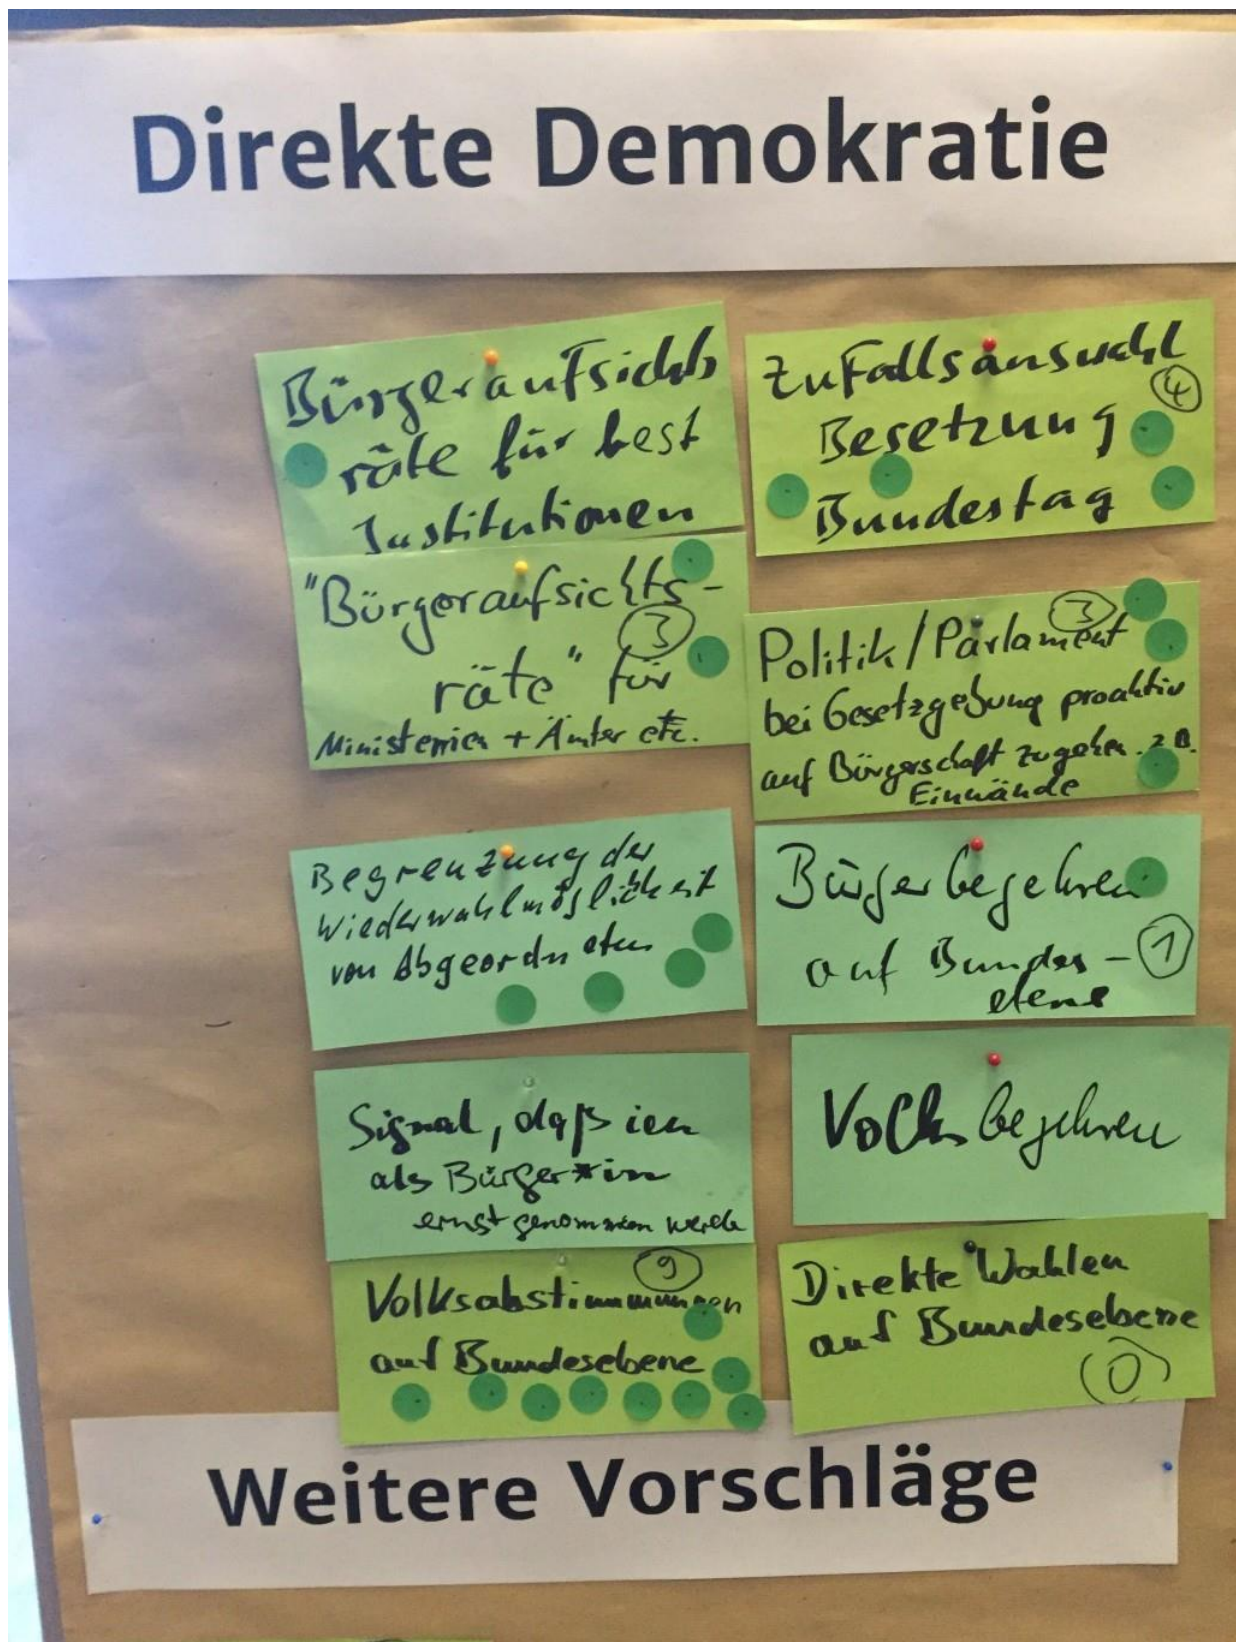 Direkte Demokratie
Bürgeraufsichts
räte für best
Institutionen
"Bürgeraufsichts-
3
räte" für
Ministerien + Ämter etc.
Begrenzung der
Wiederwahlmöglichkeit
von Abgeordneten
Signal, daß ich
als Bürger*in
ernst genommen werde
9
Volksabstimmungen
auf Bundesebene
Zufallsauswahl
4
Besetzung
Bundestag
3
Politik/Parlament
bei Gesetzgebung proaktiv
auf Bürgerschaft zugehen. z.B.
Einwände
Bürgerbegehren
auf Bundes- 1
ebene
Volksbegehren
Direkte Wahlen
auf Bundesebene
0
Weitere Vorschläge